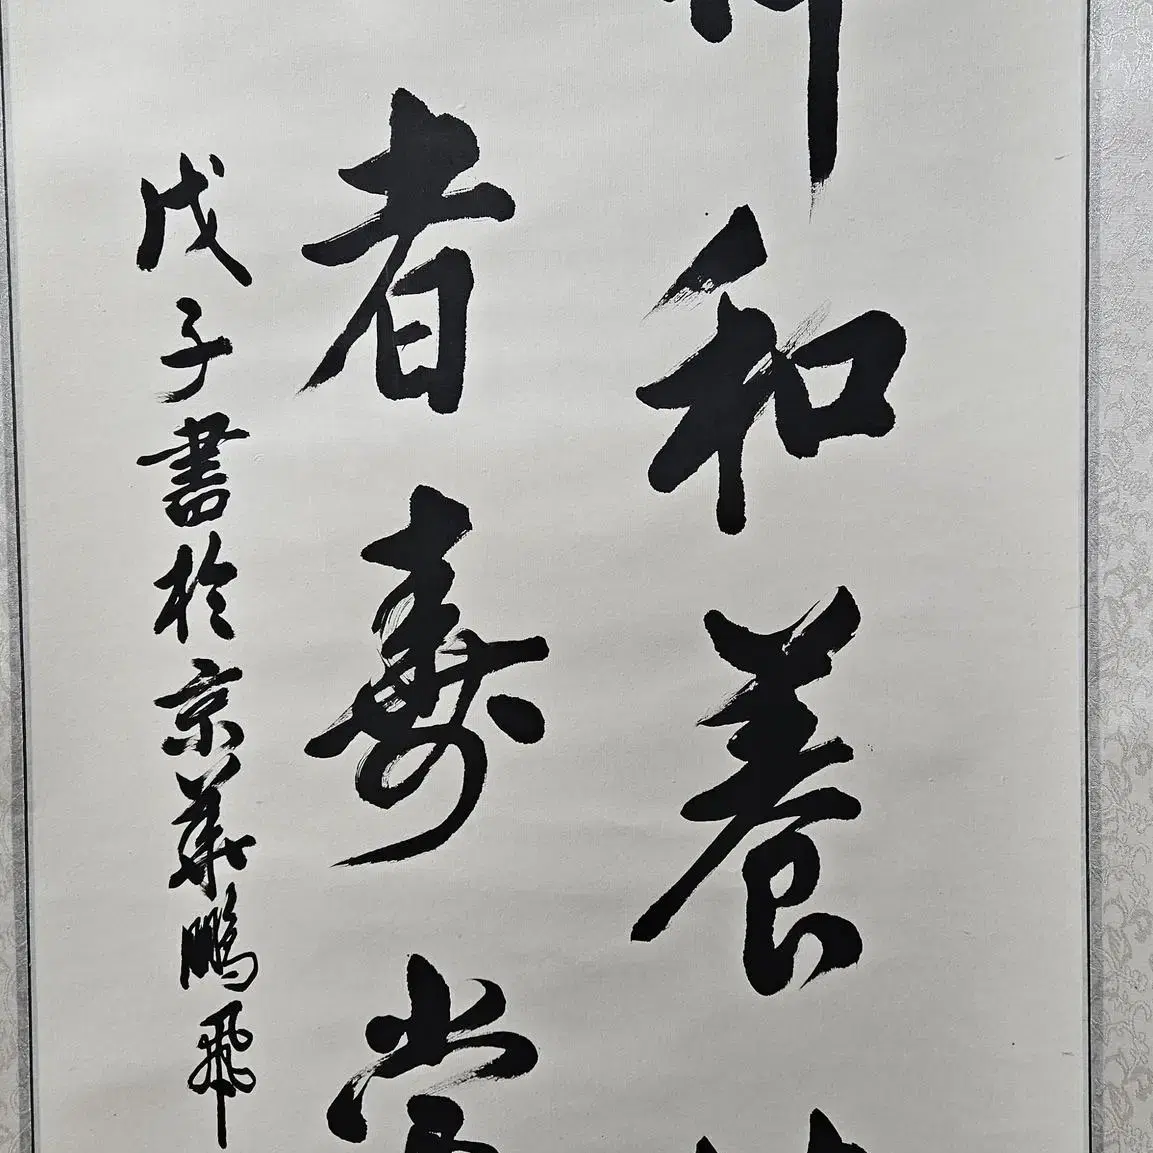 和養
者壽常
戊子書於京華鵬飛